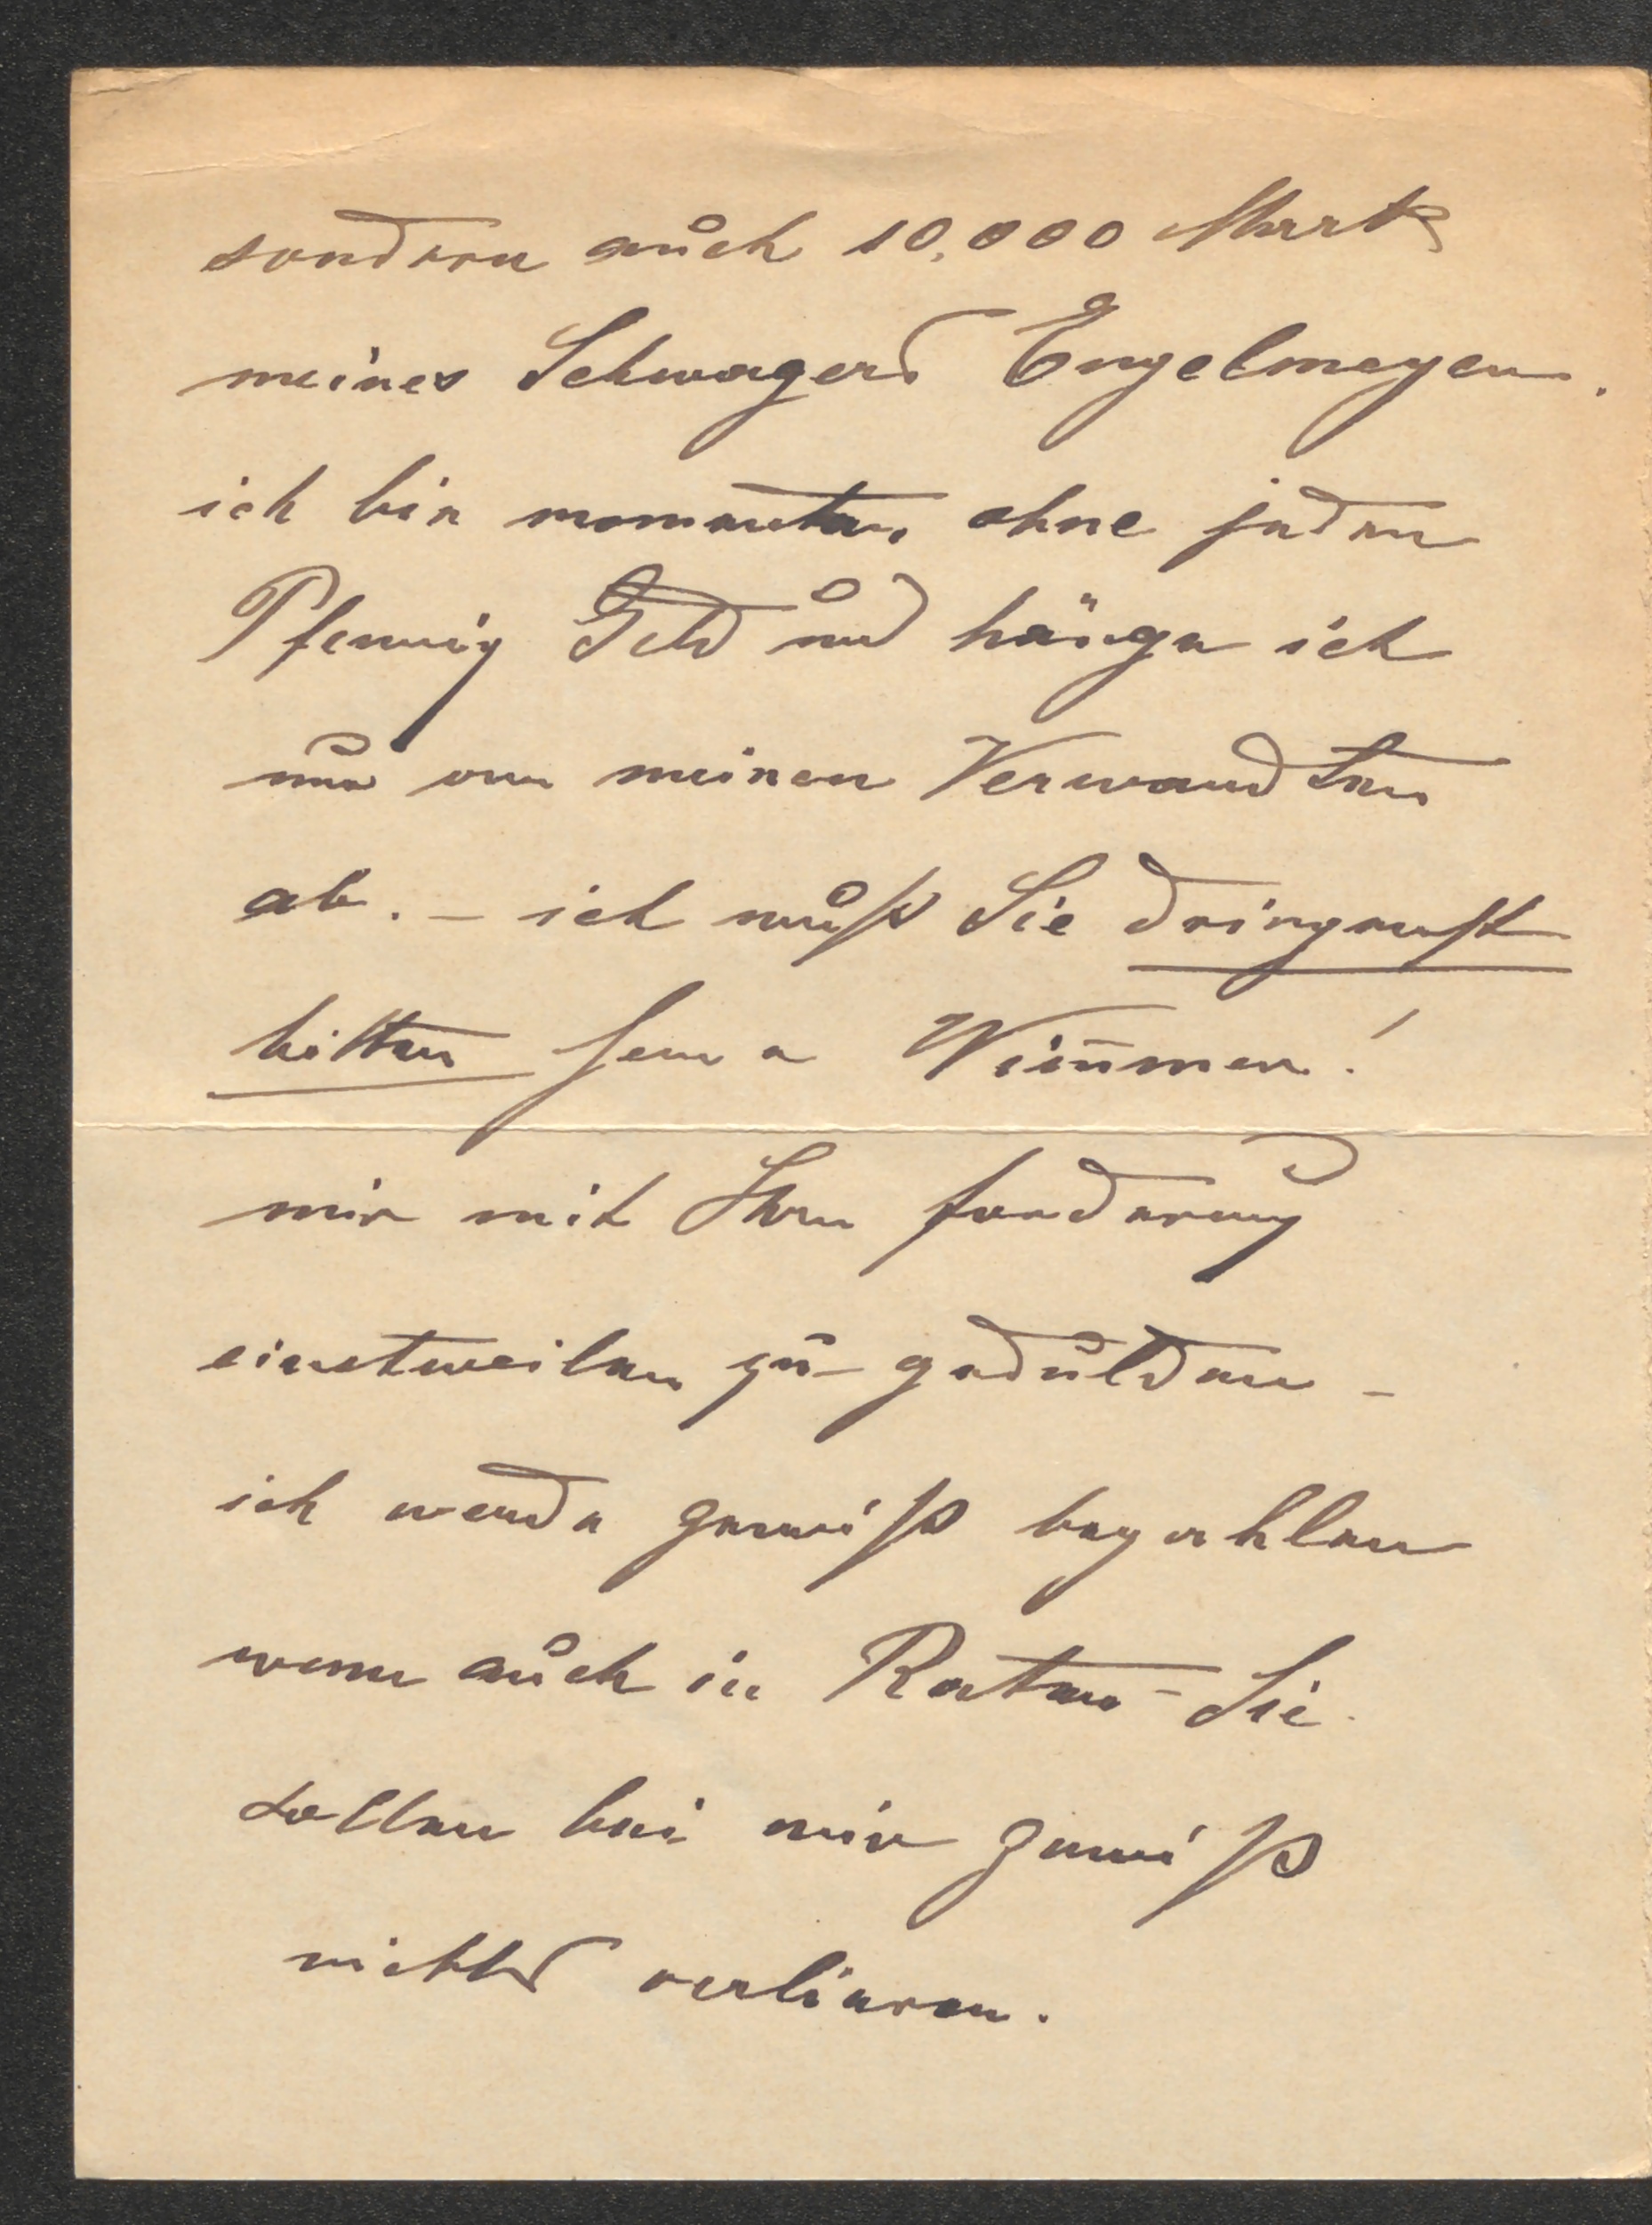 sondern auch 10,000 Mark
meines Schwagers Engelmeyer.
ich bin momentan ohne jeden
Pfennig Geld und hänge ich
nur von meinen Verwandten
ab. – ich muß Sie dringenst
bitten Wimmer!
mir mit Ihrer forderung
einstweilen zu gedulden –
ich werde gewiß bezahlen
wenn auch in Raten – Sie
sollen bei mir gewiß
nichts verlieren.